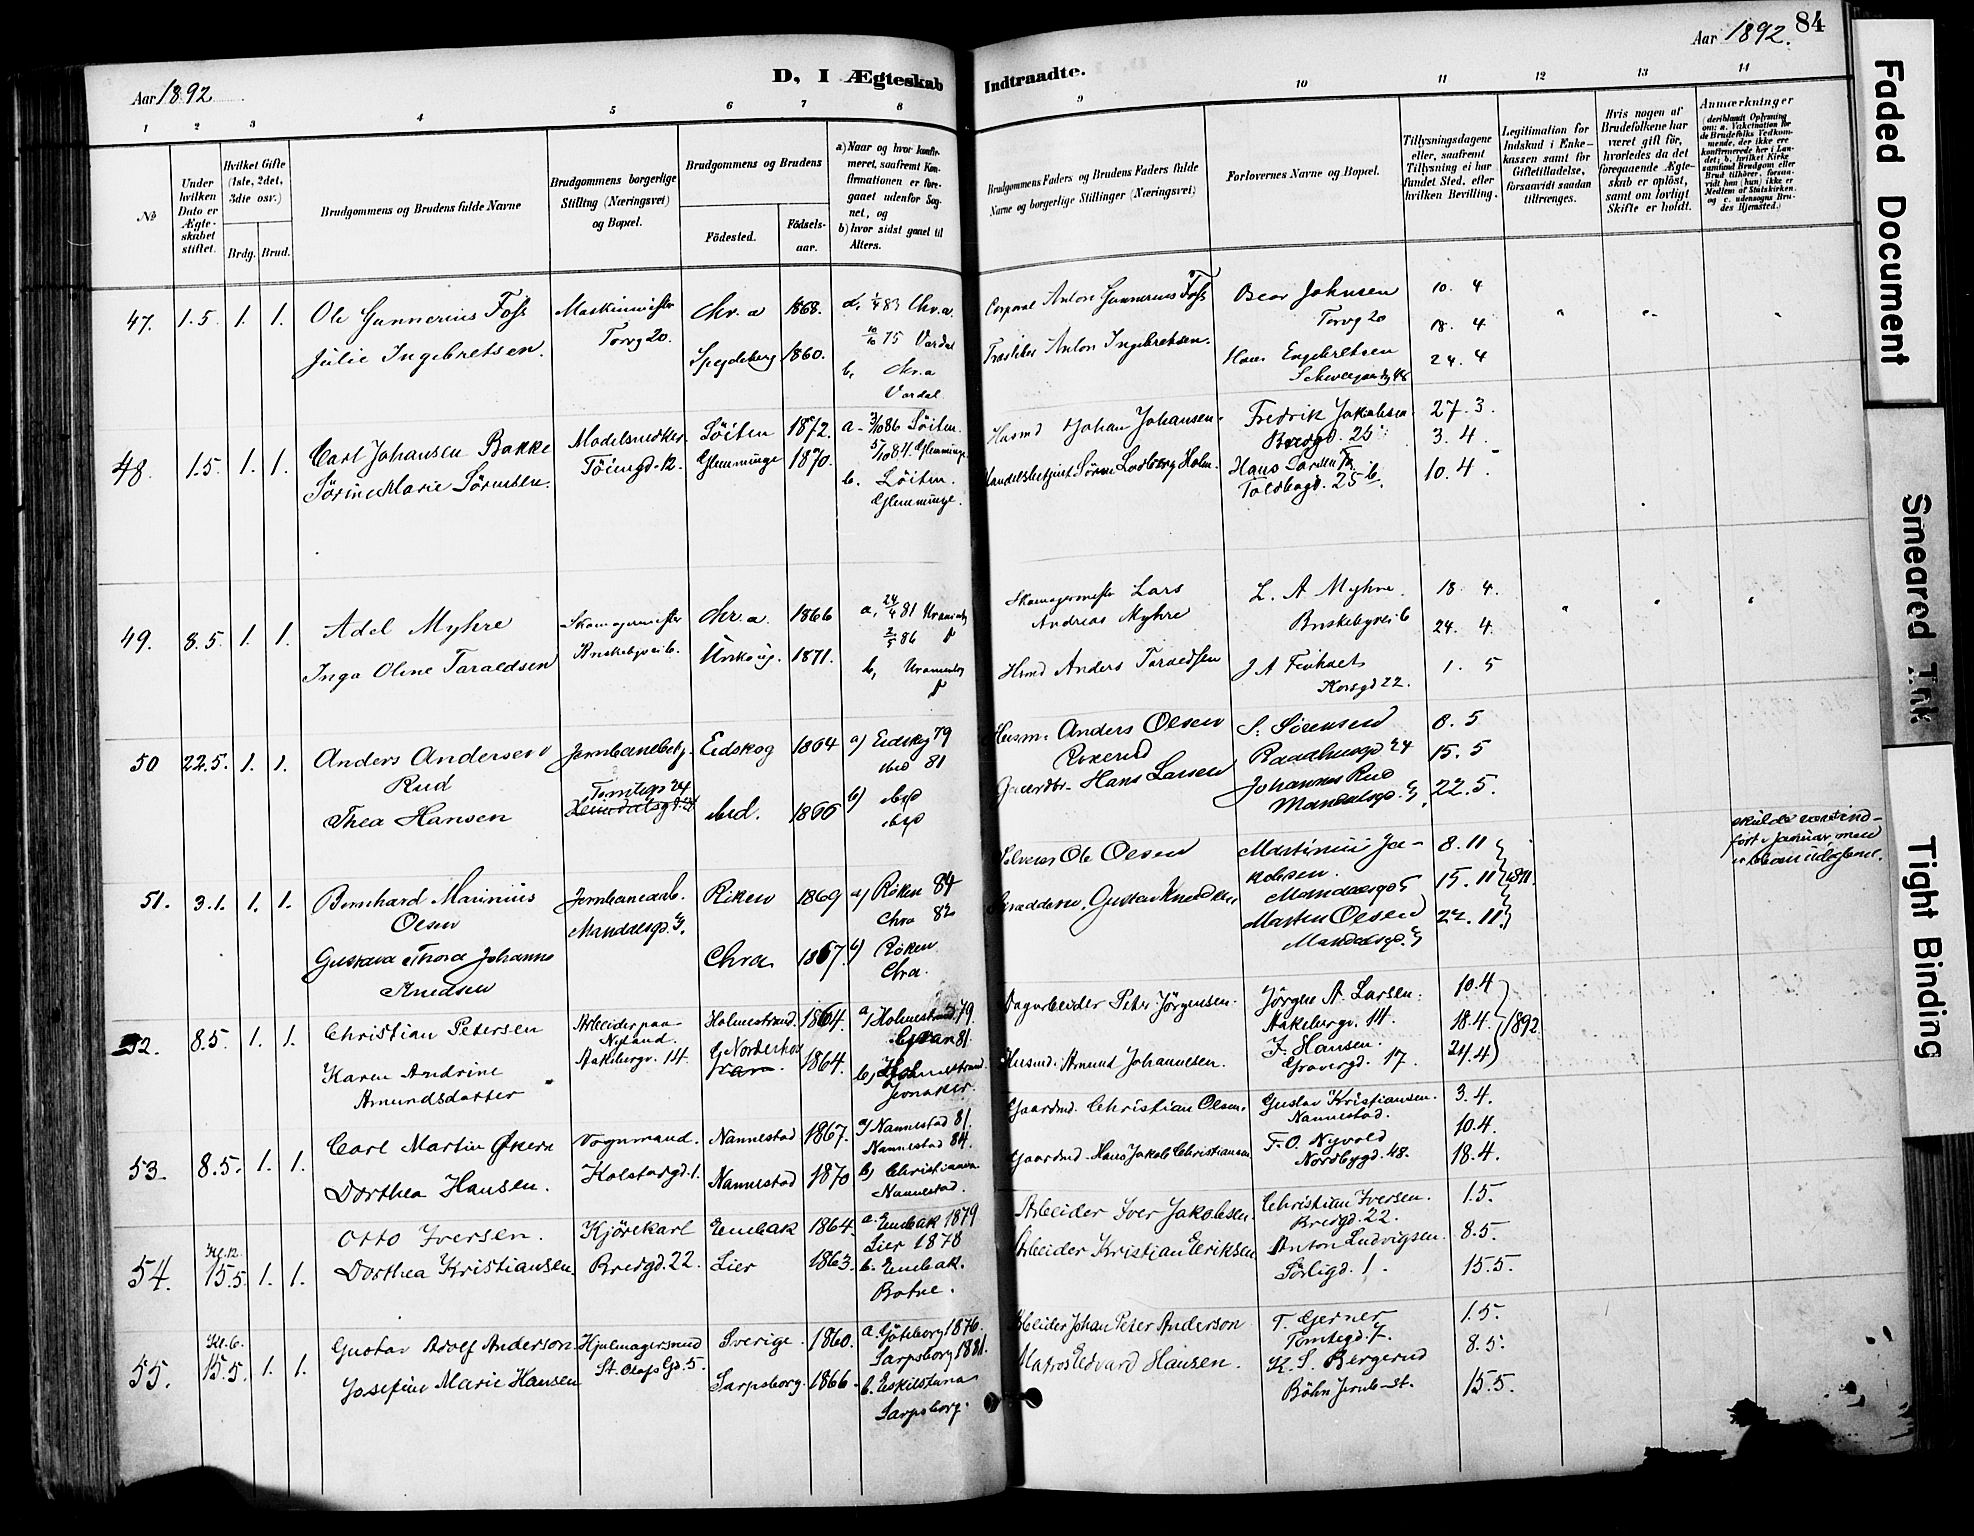 84
Aar 1892.
Aar 1892
D, I Ægteskab Indtraadte.
1 2 3 4 5 6 7 8 9 10 11 12 13 14
No
Under hvilken Dato er Ægteskabet stiftet.
Hvilket Gifte (1ste, 2det, 3die osv.)
Brdg. Brud.
Brudgommens og Brudens fulde Navne
Brudgommens borgerlige Stilling (Næringsvei) og Bopæl.
Brudgommens og Brudens
Fødested.
Fødselsaar.
a) Naar og hvor konfirmeret, saafremt Konfirmationen er foregaaet udenfor Sognet, og
b) hvor sidst gaaet til Alters.
Brudgommens Faders og Brudens Faders fulde Navne og borgerlige Stillinger (Næringsvei)
Forlovernes Navne og Bopæl.
Tillysningsdagene eller, saafremt Tillysning ei har fundet Sted, efter hvilken Bevilling.
Legitimation for Indskud i Enkekassen samt for Giftetilladelse, forsaavidt saadan tiltrænges.
Hvis nogen af Brudefolkene har været gift før, hvorledes da det foregaaende Ægteskab er opløst, samt om lovligt Skifte er holdt.
Anmærkninger
(deriblandt Oplysning om: a. Vakcination for de Brudefolks Vedkommende, der ikke ere konfirmerede her i Landet; b. hvilket Kirkesamfund Brudgom eller Brud tilhører, forsaavidt han (hun) ikke er Medlem af Statskirken, og c. udensogns Brudes Hjemsted.)
47. 1.5. 1. 1. Ole Gunnerius Foss
Julie Ingebretsen.
Maskinmester
Torvg 20.
Chr.a 1868.
Spydeberg 1860.
a, 1/4 83 Chr.a
75 Vardal
b, Chr.a
Vardal
Corporal Anton Gunnerius Foss
Anton Ingebretsen.
Oscar Johnsen
Torvg 20
Hans Engebretsen
10. 4
18. 4
24. 4
48. 1.5. 1. 1. Carl Johansen Bakke
Sørine Marie Sørensen.
Modelsnedker
Töiengd. 12.
Löiten 1872.
Glemminge 1870.
a. 86 Löiten
84 Glemminge
b. Löiten.
Glemminge.
Husmd Johan Johansen.
Handelsbetjent Sören Lodberg Holm.
Fredrik Jakobsen
Bredgd. 25
Hans Larsen
Toldbogd. 25 b.
27. 3.
3. 4.
10. 4.
49. 8.5. 1. 1. Adel Myhre
Inga Oline Taraldsen
Skomagermester
Briskebyvei 6.
Chr.a. 1866
1871.
a, 24/4 81 Uranienb
2/5 86
b, Uranienb
Skomagermester Lars
Andreas Myhre
Husmd Anders Taraldsen
L. A Myhre
Briskebyvei 6
Korsgd 22.
18. 4.
24. 4.
1. 5
50 22.5. 1. 1. Anders Andersen
Rud
Thea Hansen
Jernbanebetj.
Tomtegd 24
Eidskog 1864
ibid. 1866
a) Eidskog 79
ibid 81
b) ibid
ibid
Husm. Anders Olsen
Gaardbr. Hans Larsen
S. Sørensen
Raadhusgd 24
Johannes Rud
Mandalsgd.
8. 5
15. 5
22. 5.
51. 3.1. 1. 1. Bernhard Marinius
Olsen
Gustava Thora Johanne
Knudsen
Jernbanearb.
Mandalsgd.
Röken 1869
Chra. 1867.
a) Röken 84
Chra 82
b) Röken
Chra.
Selveier Ole Olsen
Skrædderm. Gustav Knudsen
Martinius Jakobsen.
Mandalsgd
Martin Olsen
Mandalsgd.
8. 11
15. 11 1891.
22. 11.
skulde været indfört i Januar, men
52. 8.5. 1. 1. Christian Petersen
Karen Andrine
Amundsdatter
Arbeider paa
Nyland.
Aakebergv. 14.
Holmestrand. 1864.
Norderhov
Gran. 1864.
a) Holmestrand 79.
Gran 81.
b) Holmestrand.
Jevnaker.
Dagarbeider Peter Jörgensen.
Husmd. Amund Johannesen.
Jörgen A. Larsen.
Aakebergv. 14.
J. Hansen.
Gravergd. 17.
10.4
18.4. 1892.
24.4
53. 8.5. 1. 1. Carl Martin Økern
Dorthea Hansen.
Vognmand.
Holstadgd. 1.
Nannestad 1867.
Nannestad 1870
a) Nannestad 81.
Nannestad 84.
b) Christiania.
Nannestad.
Gaardmd. Christian Olsen.
Gaardmd. Hans Jakob Christiansen
Gustav Kristiansen.
Nannestad.
F. O. Nyvold
Nordbygd. 48.
3. 4.
10.4.
18.4.
54. Kl. 12.
15.5. 1. 1. Otto Iversen.
Dorthea Kristiansen.
Kjörekarl
Bredgd. 22.
Enebak 1864.
Lier 1863.
a. Enebak 1879
Lier 1878
b. Enebak.
Botne.
Arbeider Iver Jakobsen.
Arbeider Kristian Eriksen
Christian Iversen.
Bredgd. 22.
Anton Ludvigsen.
Sörligd. 1.
1.5.
8.5.
15.5.
55. Kl. 6.
15.5. 1. 1. Gustav Adolf Anderson
Josefine Marie Hansen
Hjulmagersvend
St. Olafs Gd. 5.
Sverige. 1860.
Sarpsborg. 1866.
a. Göteborg 1876.
Sarpsborg 1881.
b. Eskilstuna
Sarpsborg.
Arbeider Johan Peter Anderson
Matros Edvard Hansen.
T. Gjerner
Tomtegd. 7.
K. S. Bergerud
Böhn Jernb-St.
1.5.
8.5.
15.5.
Faded Document
Smeared Ink
Tight Binding